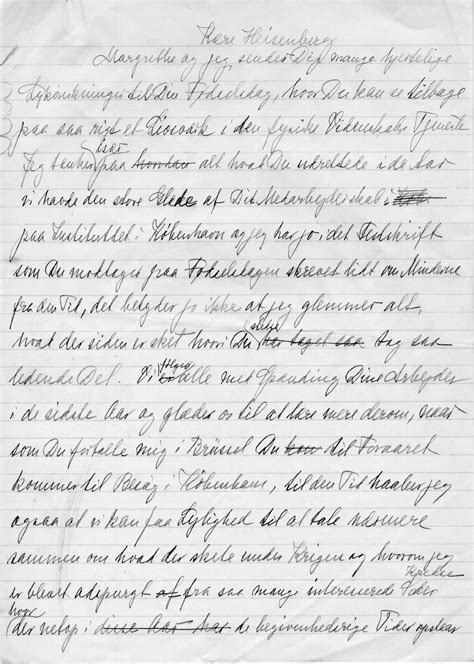 Kære Heisenberg
Margrethe og jeg sender Dig mange hjertelige
Lykønskninger til Din Fødselsdag, hvor Du kan se tilbage
paa saa rigt et Livsværk i den fysiske Videnskabs Tjeneste
især
Jeg tænker paa hvordan alt hvad Du udrettede i de Aar
vi havde den store Glæde af Dit Medarbejderskab i
paa Instituttet i København og jeg har jo i det Festskrift
som Du modtager paa Fødselsdagen skrevet lidt om Minderne
fra den Tid, det betyder jo ikke at jeg glemmer alt,
hvad der siden er sket hvori Du har taget saa tog saa
ledende Del. Vi alle med Spænding Dine Arbejder
i de sidste Aar og glæder os til at lære mere derom, naar
som Du fortalte mig i Brüssel Du kan til Foraaret
kommer til Besøg i København, til den Tid haaber jeg
ogsaa at vi kan faa Lejlighed til at tale nærmere
sammen om hvad der skete under Krigen og hvorom jeg
er blevet adspurgt af fra saa mange interesserede
hvor
der netop i disse Aar har de begivenhedsrige Tider opstaar